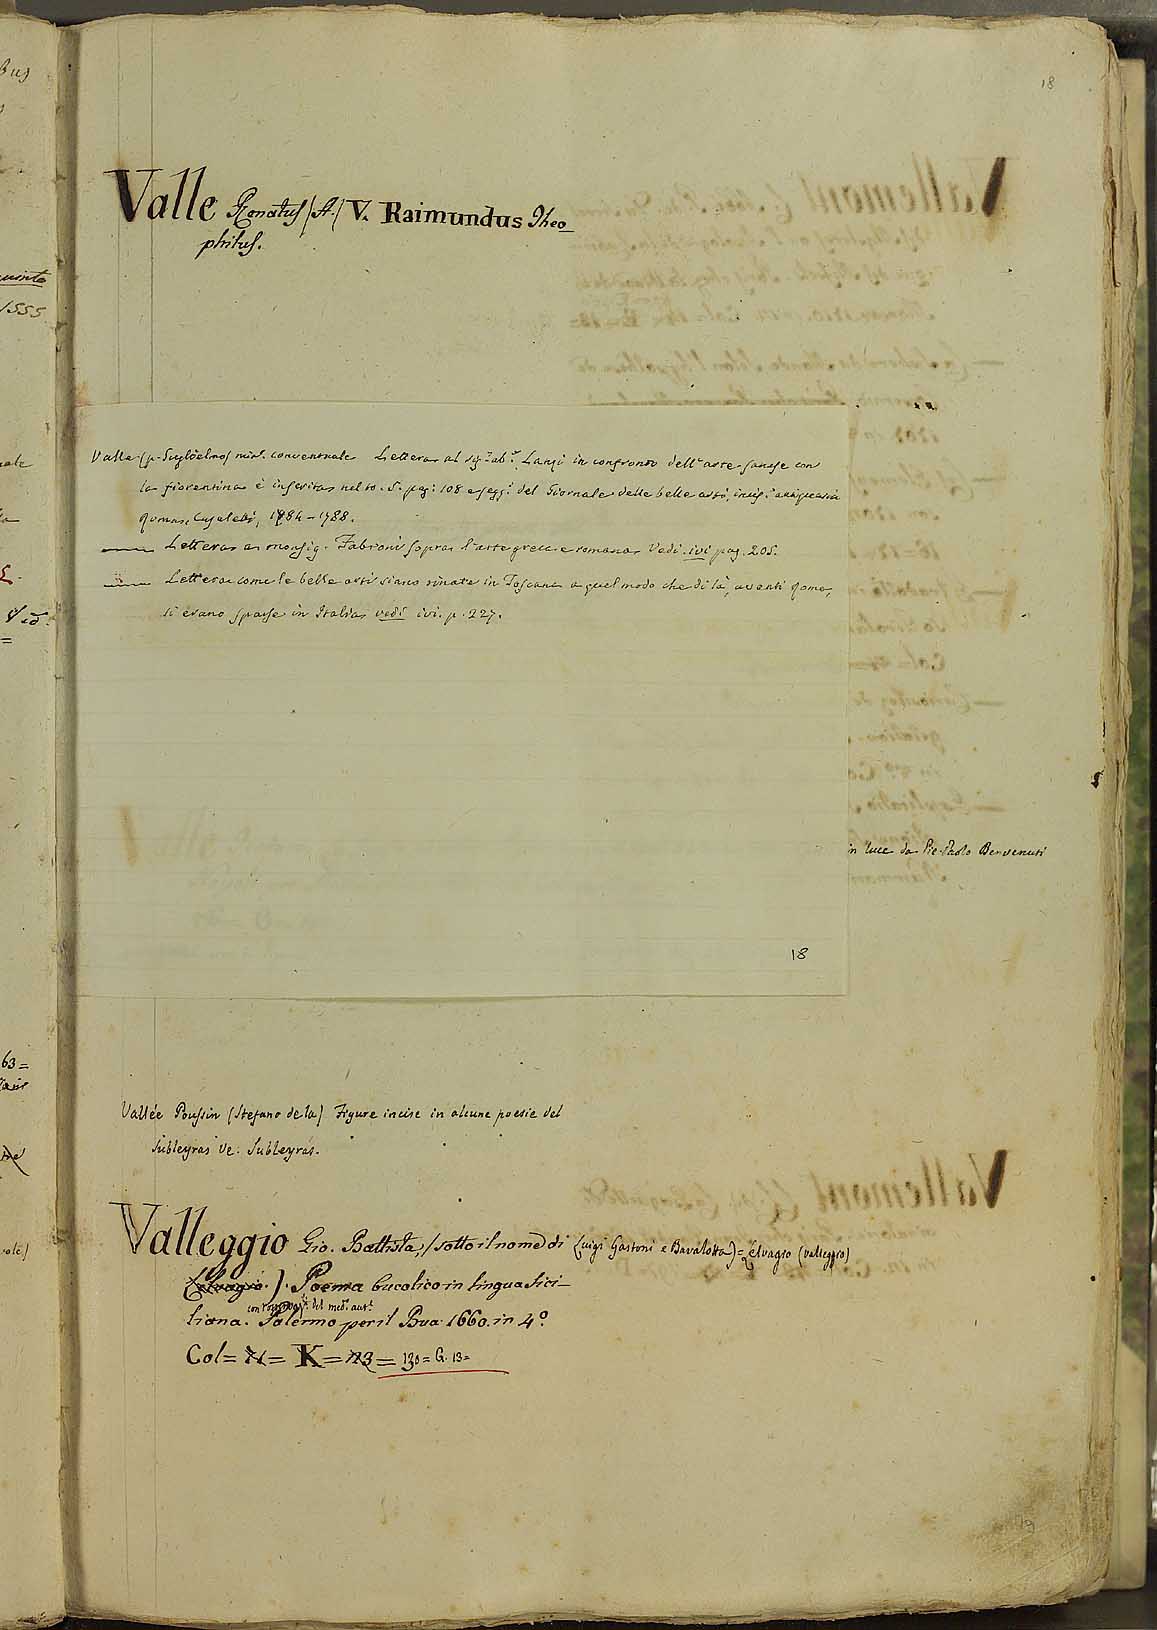 18
Valle Renatus (A.) V. Raimundus Theo_
philus.
Valle (p. Guglielmo) min. conventuale Lettera al sig. ab. Lanzi in confronto dell'arte sanese con
la fiorentina è inserita nel to. 5. pag. 108 e segg. del Giornale delle belle arti,
Roma, Casaletti, 1784-1788.
—— Lettera a monsig. Fabroni sopra l'arte greca e romana Vedi ivi pag. 205.
—— Lettera come le belle arti siano rinate in Toscana a quel modo che di là, avanti Roma,
si erano sparse in Italia, vedi ivi. p. 227.
in luce da Pie. Paolo Benvenuti
18
Vallée Poussin (Stefano de la) Figure incise in alcune poesie del
Subleyras Ve: Subleyras.
Valleggio Gio. Battista (sotto il nome di Luigi Gastoni e Bavalotta) = Elvagio (Valleggio)
(Elvagio.). Poema bucolico in lingua Sici_
con
liana. Palermo per il Bua 1660. in 4º
Col= = K = 113 = 130 = G. 13=
19
quinto
1555
63=